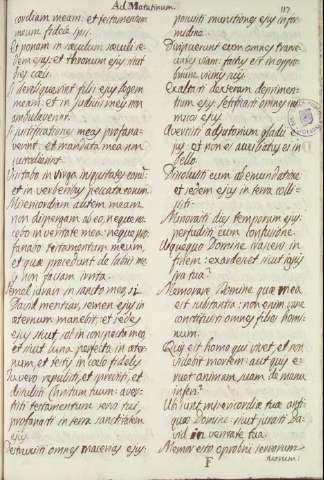 Ad Matutinum.
117
cordiam meam: et testamentum
meum fidele ipsi.
Et ponam in sæculum sæculi se-
men ejus: et thronum ejus sicut
dies cœli.
Si dereliquerint filij ejus legem
meam: et in judicijs meis non
ambulaverint.
Si justificationes meas profana-
verint: et mandata mea non
custodierint.
Visitabo in virga iniquitates eorum:
et in verberibus peccata eorum.
Misericordiam autem meam
non dispergam ab eo: neque no-
cebo in veritate mea: neque pro-
fanabo testamentum meum:
et quæ procedunt de labijs me-
is non faciam irrita.
Semel juravi in sancto meo, si
David mentiar, semen ejus in
æternum manebit: et sedes
ejus sicut sol in conspectu meo,
et sicut luna perfecta in æter-
num, et testis in cœlo fidelis.
Tu vero repulisti, et
distulisti Christum tuum: aver-
tisti testamentum servi tui,
profanasti in terra sanctitatem
ejus.
Destruxisti omnes macerias ejus:
posuisti munitiones ejus in for-
midine.
Diripuerunt eum omnes trans-
euntes viam: factus est in oppro-
brium vicinis suis.
Exaltasti dexteram deprimen-
tium ejus: lætificasti omnes ini-
micos ejus.
Avertisti adjutorium gladij e-
jus: et non es auxiliatus ei in
bello.
Dissoluisti eum ab emundatione:
et sedem ejus in terra colli-
sisti.
Minorasti dies temporum ejus:
perfudisti eum confusione.
Usquequo Domine in
finem: exardescet sicut ignis
ira tua?
Memorare Domine quæ mea
est substantia: non enim vane
constituisti omnes filios homi-
num.
Quis est homo qui vivet, et non
videbit mortem: aut quis e-
ruet animam suam de manu
inferi?
Ubi sunt misericordiæ tuæ anti-
quæ Domine: sicut jurasti Da-
vid in veritate tua.
Memor esto oprobrij servorum
F